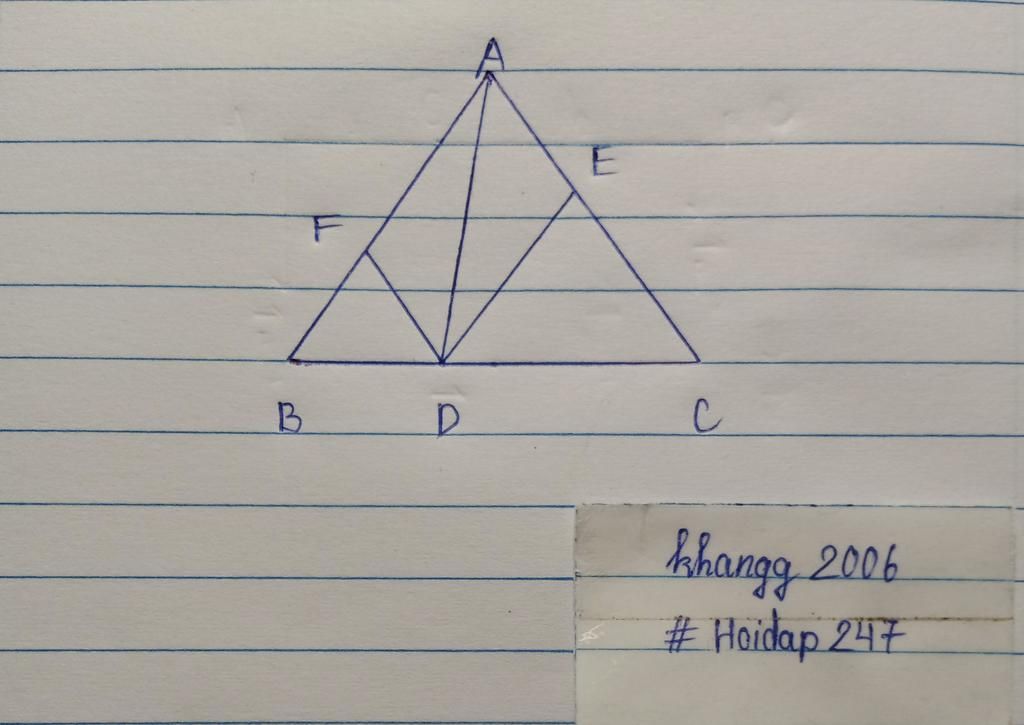 A
E
F
B D C
khangg 2006
# Hoidap 247